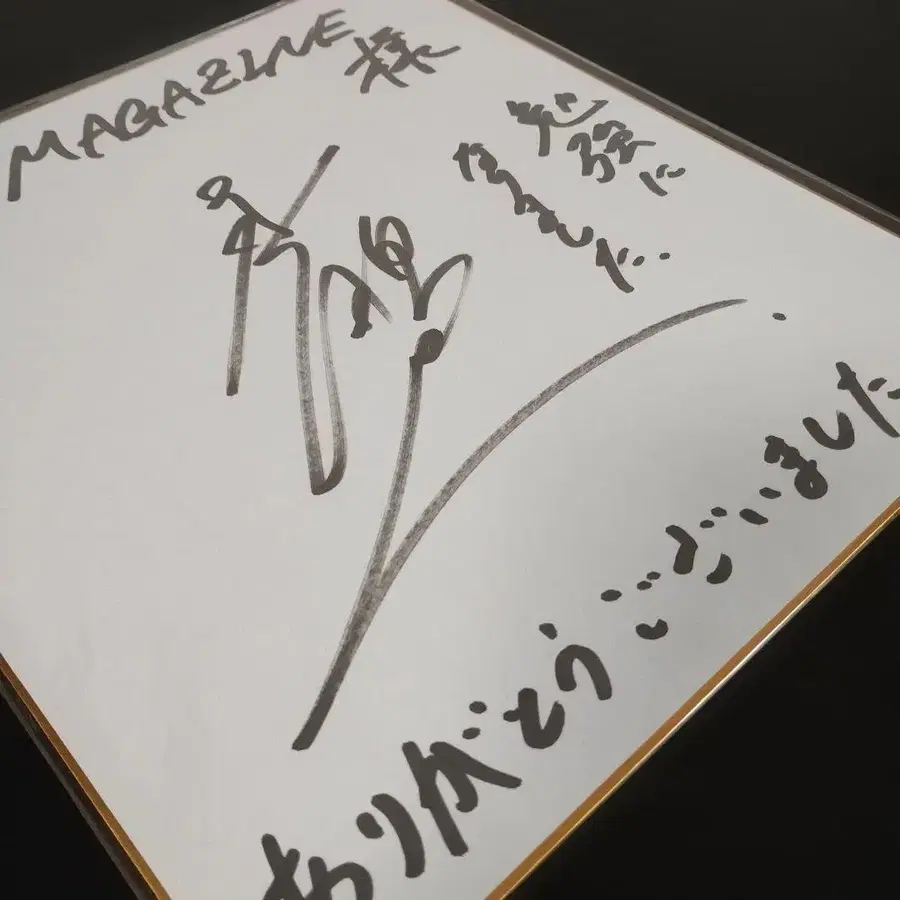 MAGAZINE様
勉強に
なりました.
ありがとうございました